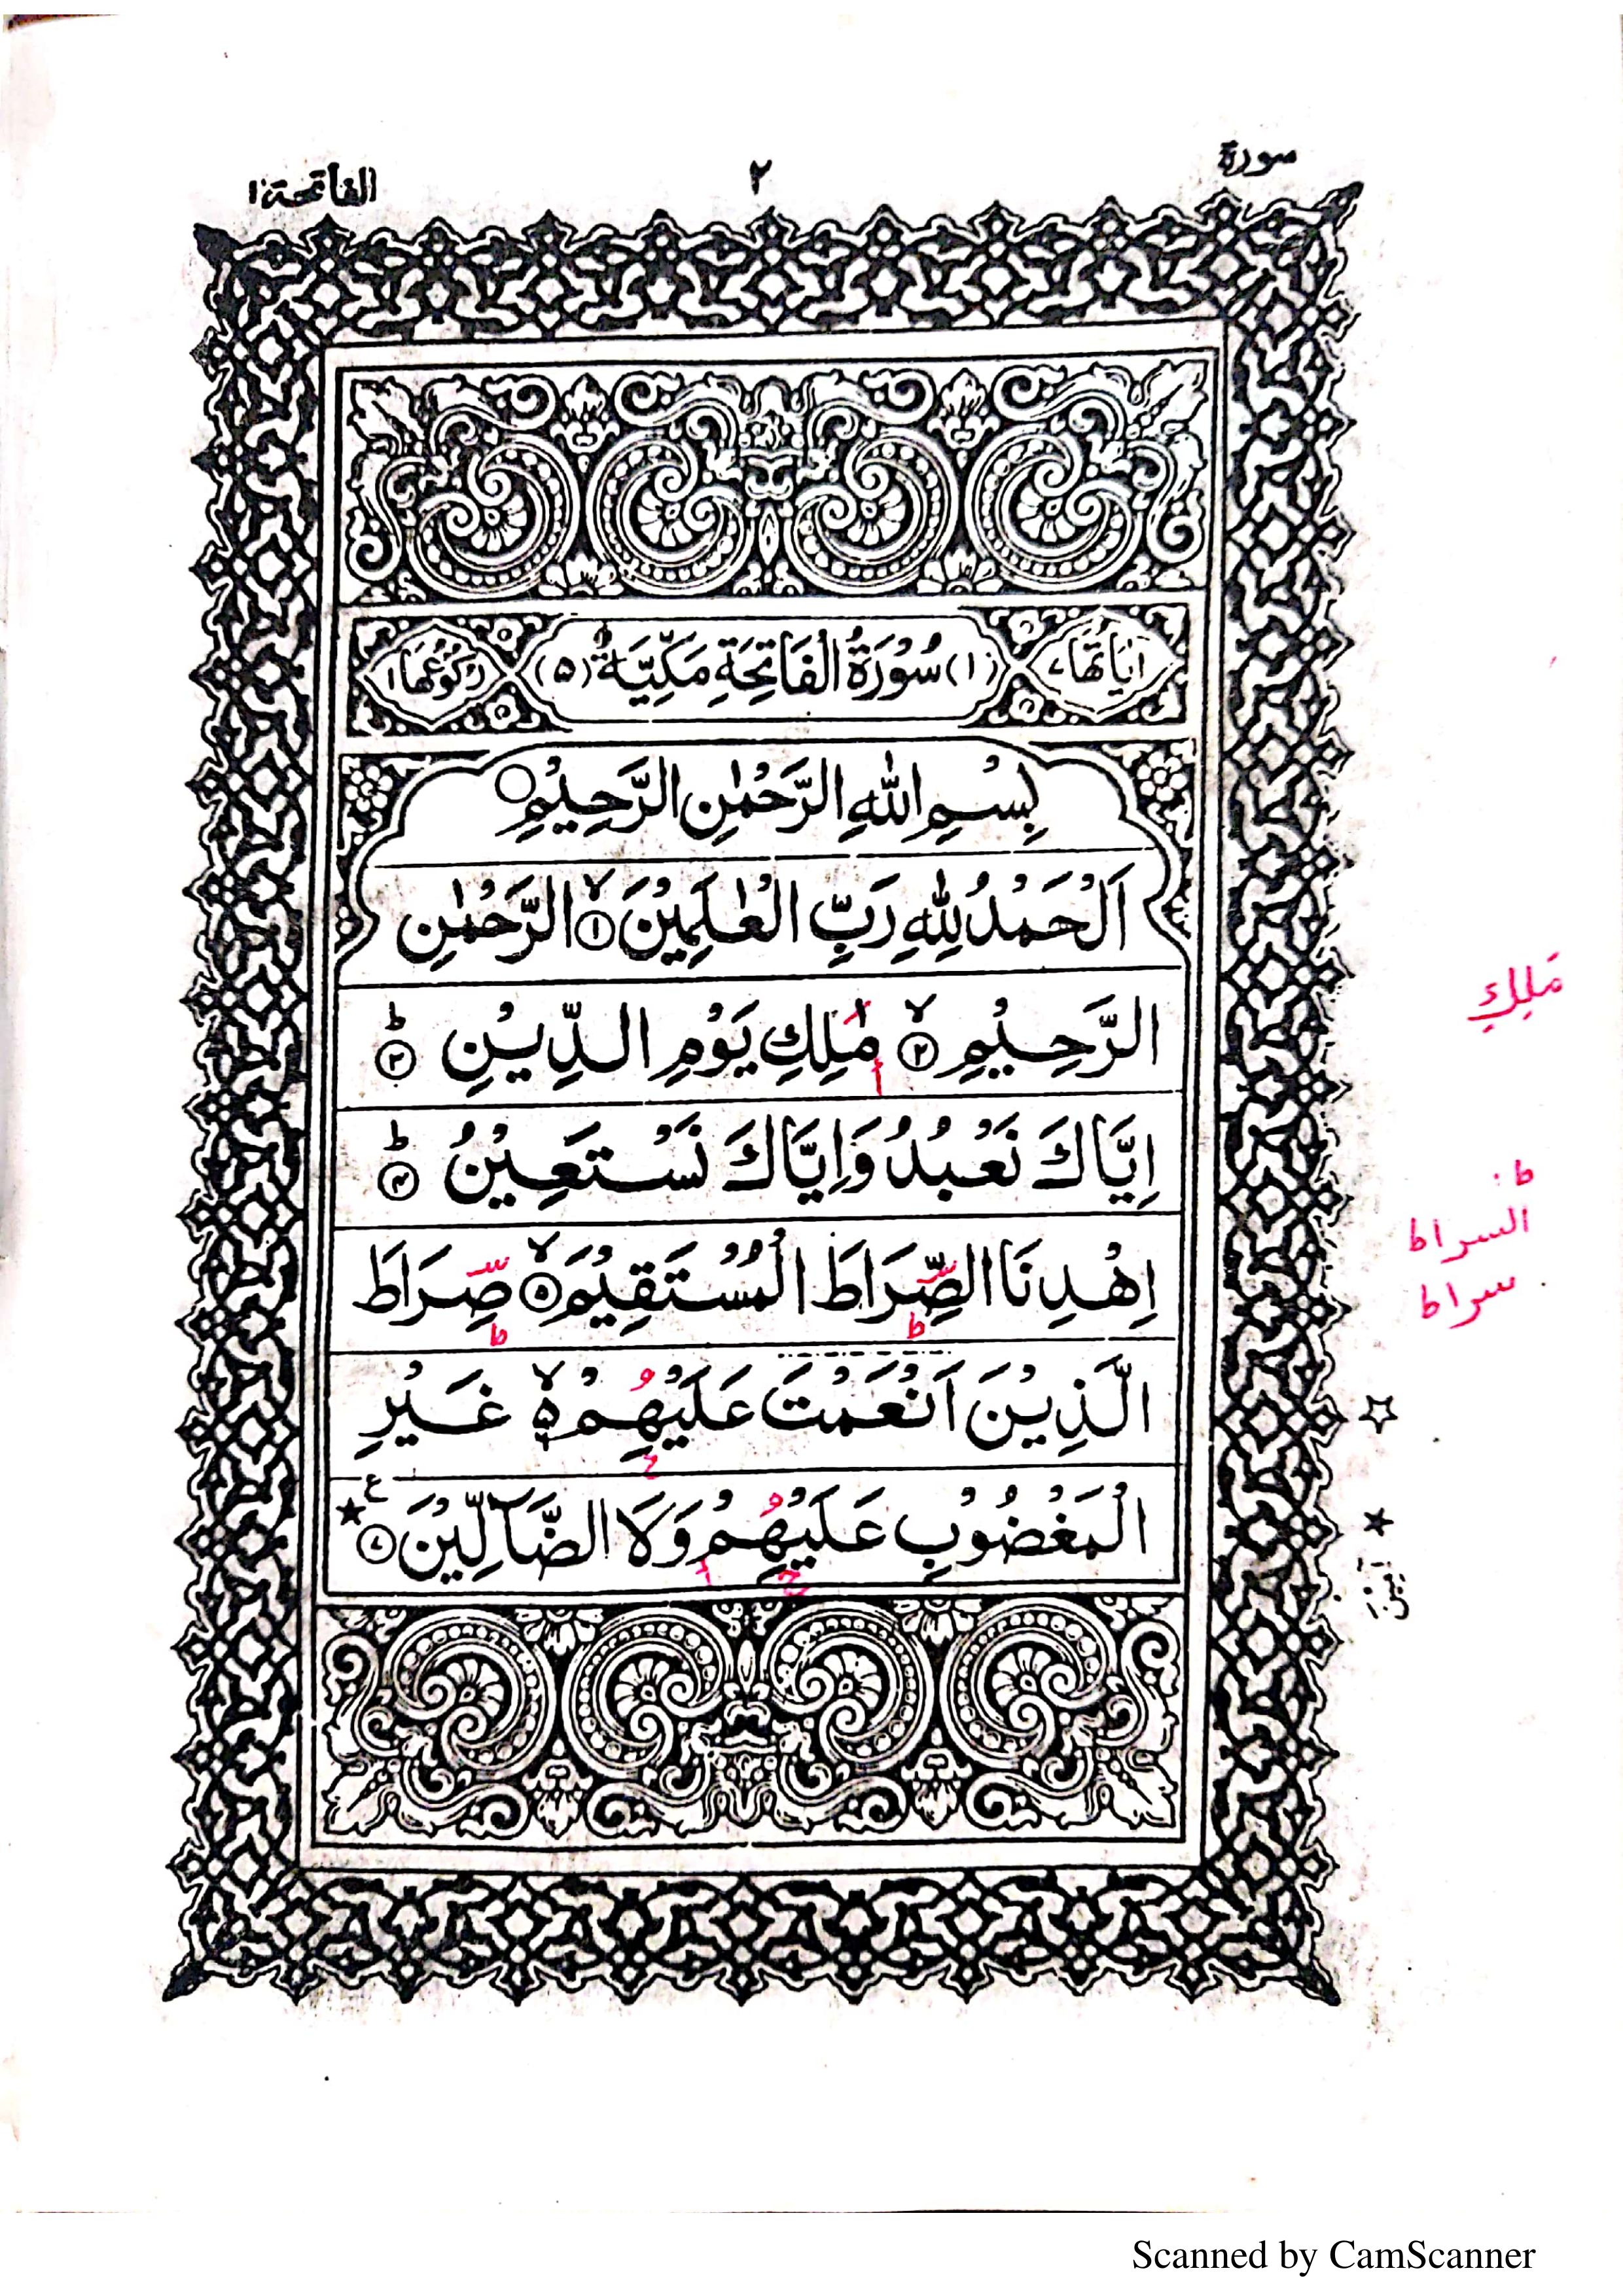 سورة ٢ الفاتحة ١
اٰيَاتُهَا ٧ (١) سُوْرَةُ الْفَاتِحَةِ مَكِّيَّةٌ (٥) رُكُوْعُهَا ١
بِسْمِ اللّٰهِ الرَّحْمٰنِ الرَّحِيْمِ
اَلْحَمْدُ لِلّٰهِ رَبِّ الْعٰلَمِيْنَ ۙ ١ الرَّحْمٰنِ
الرَّحِيْمِ ۙ ٢ مٰلِكِ يَوْمِ الدِّيْنِ ؕ ٣
مَلِكِ
اِيَّاكَ نَعْبُدُ وَاِيَّاكَ نَسْتَعِيْنُ ؕ ٤
ط
السراط
سراط
اِهْدِنَا الصِّرَاطَ الْمُسْتَقِيْمَ ۙ ٥ صِرَاطَ
الَّذِيْنَ اَنْعَمْتَ عَلَيْهِمْ ۙ ٥ غَيْرِ
الْمَغْضُوْبِ عَلَيْهِمْ وَلَا الضَّآلِّيْنَ ٧ ع
Scanned by CamScanner